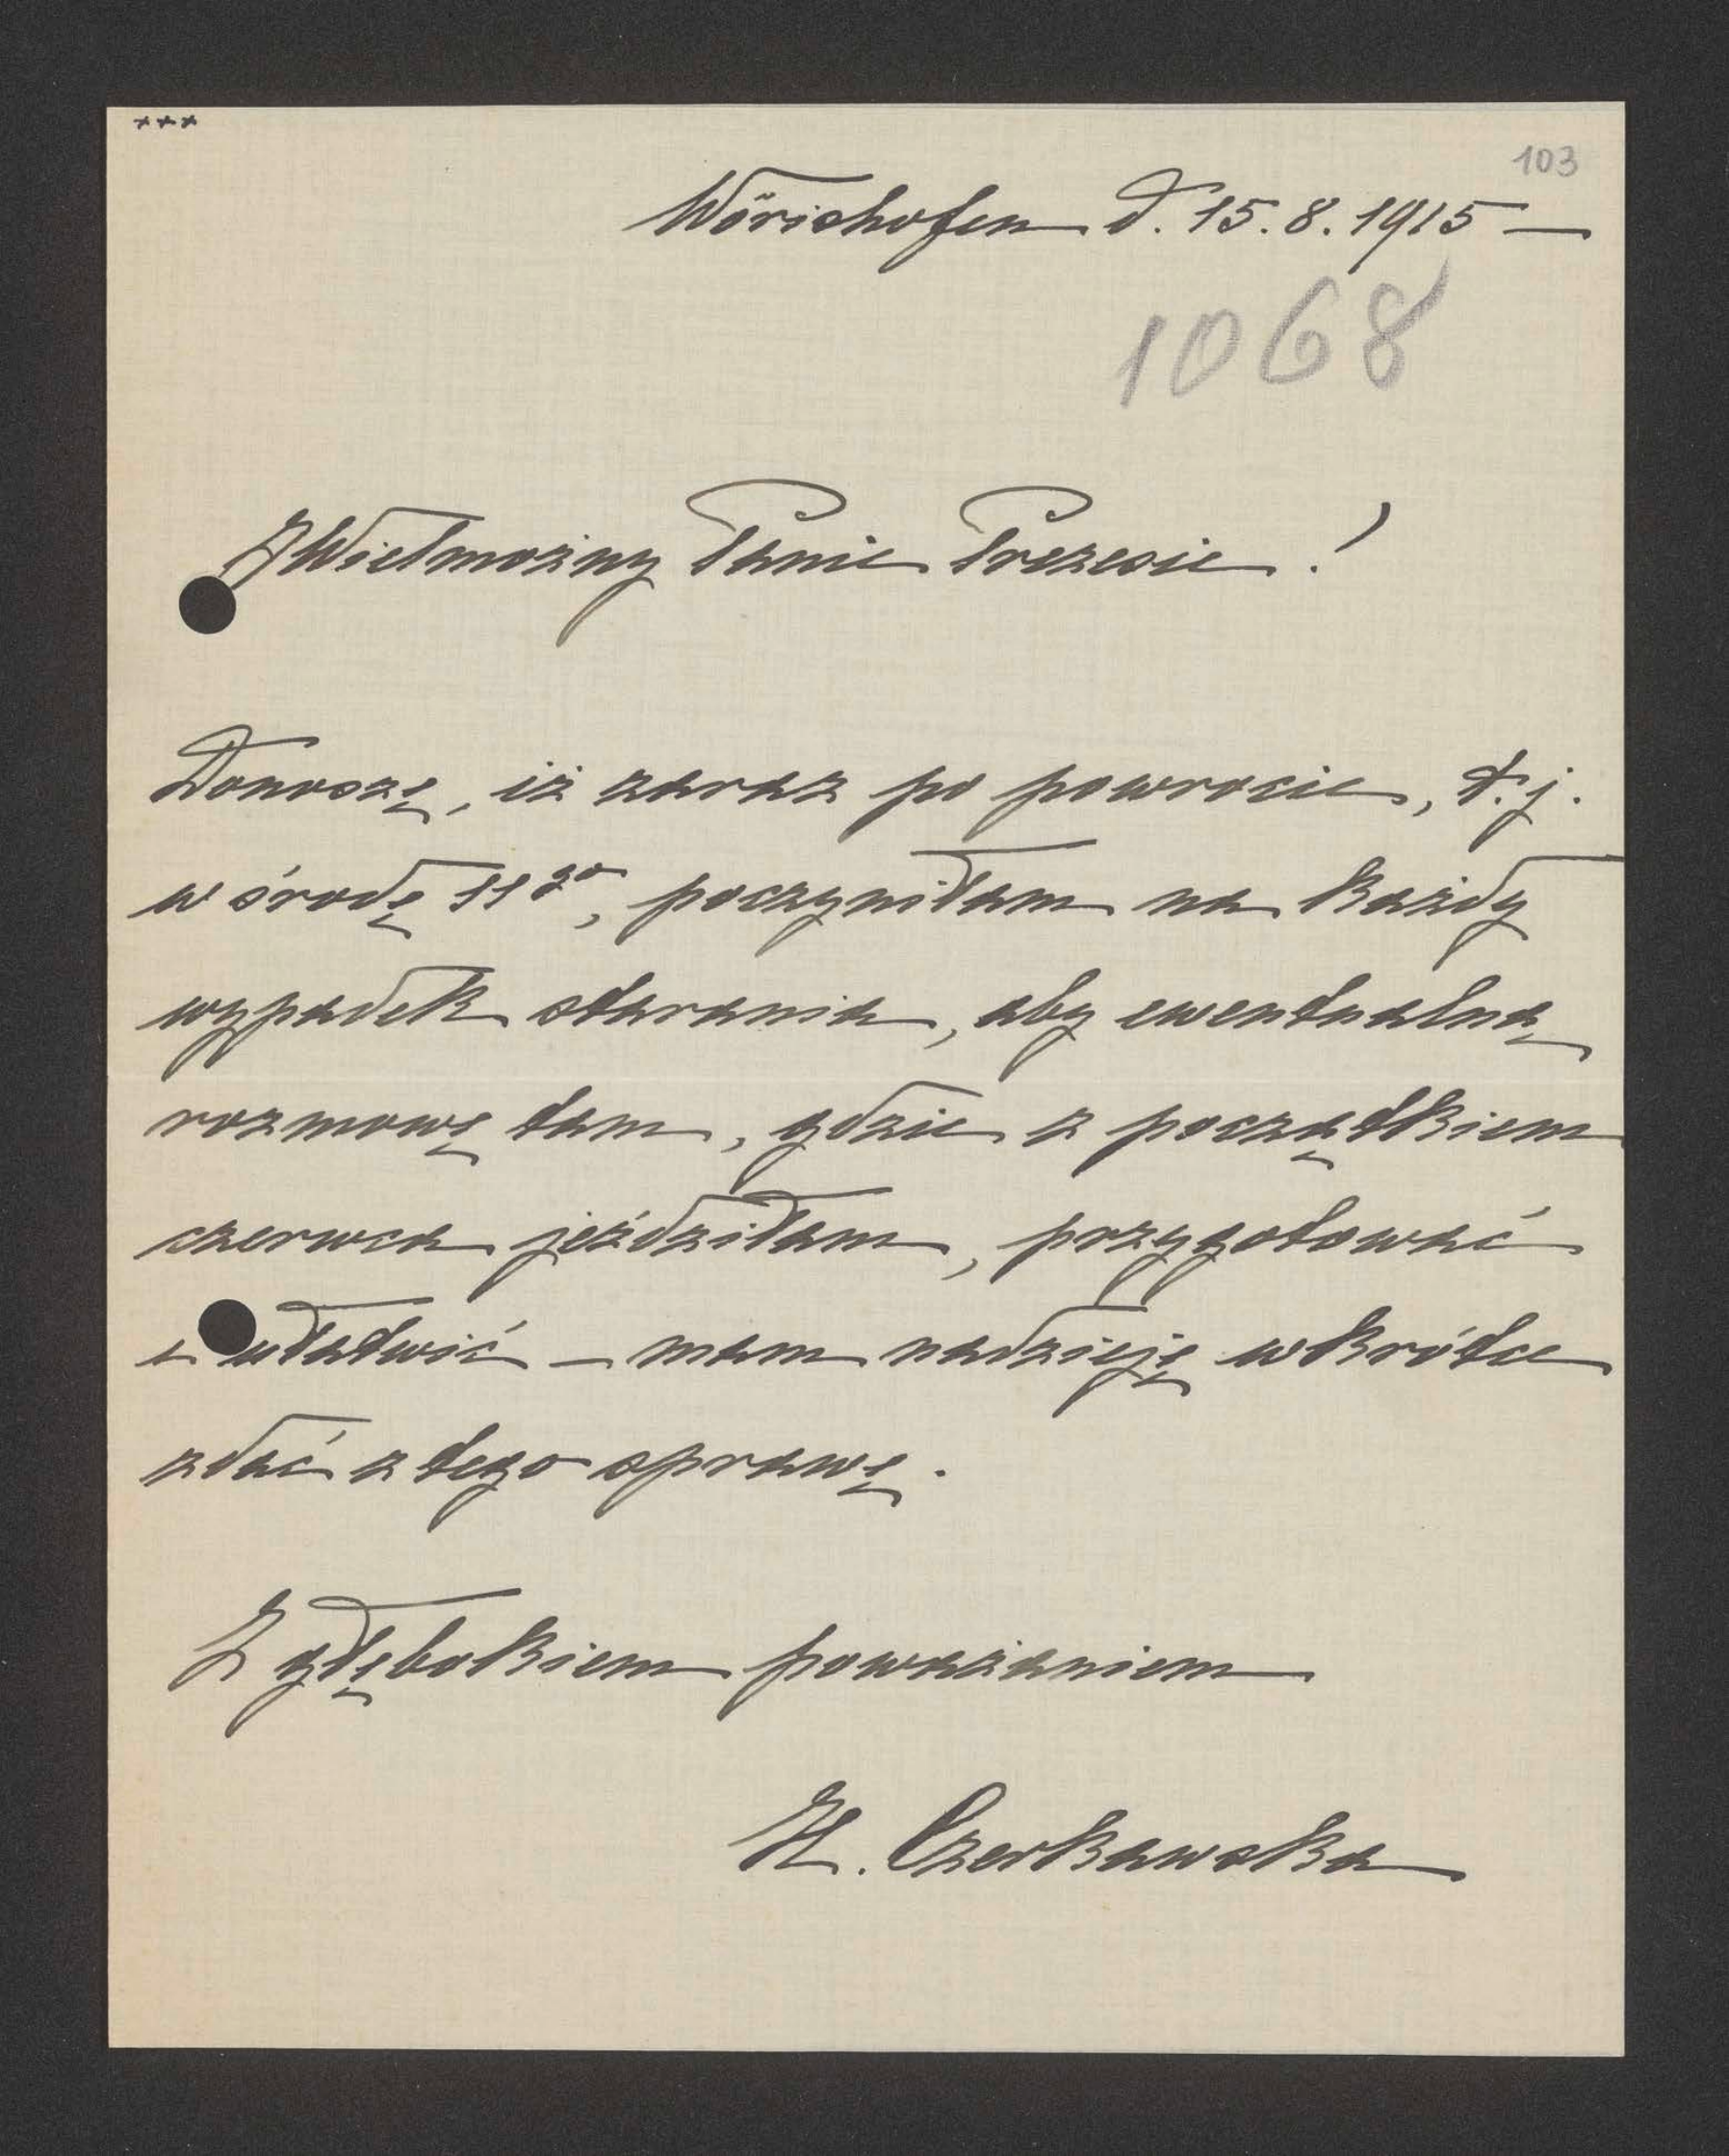 +++
103
Wörishofen d. 15.8.1915 —
1068
JWielmożny Panie Prezesie!
Donoszę, iż zaraz po powrocie, t.j.
w środę 11go, poczyniłam na każdy
wypadek starania, aby ewentualną
rozmowę tam, gdzie z początkiem
czerwca jeździłam, przygotować
i ułatwić – mam nadzieję wkrótce
zdać z tego sprawę.
Z głębokiem poważaniem
H. Czerkawska